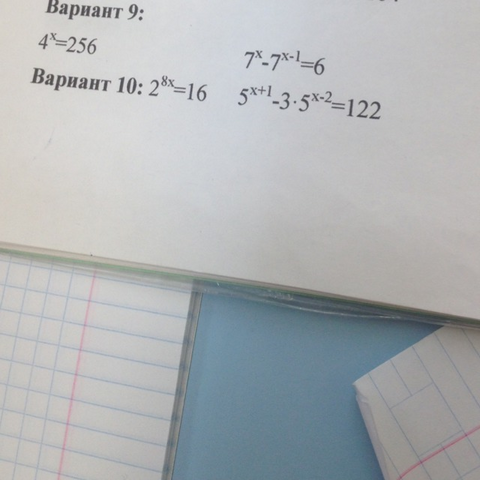 Вариант 9:
4ˣ=256 7ˣ-7ˣ⁻¹=6
Вариант 10: 2⁸ˣ=16 5ˣ⁺¹-3·5ˣ⁻²=122